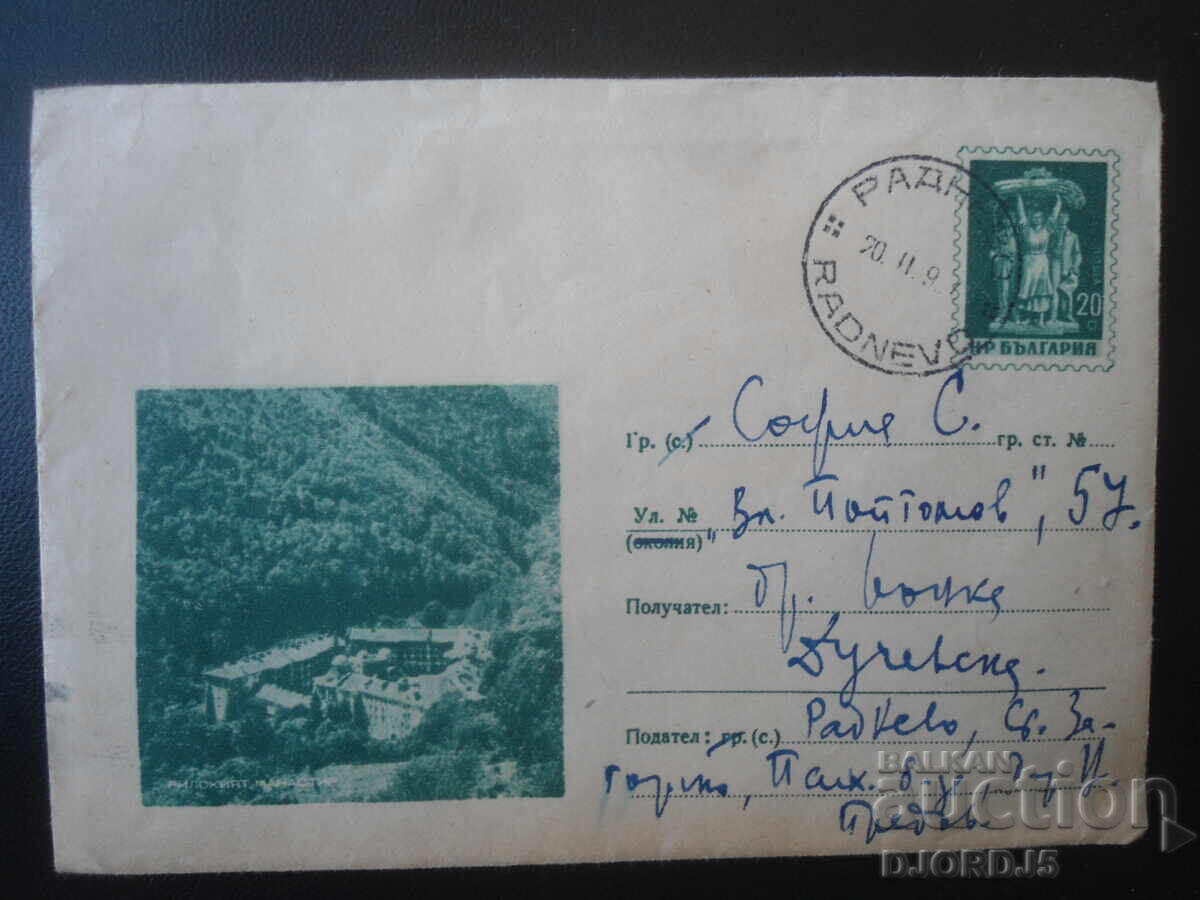 РАДН
20. II. 9
RADNEVO
20
СТ
НР БЪЛГАРИЯ
Гр. (с.) София С. гр. ст. №
Ул. № „Вл. Поптомов", 57.
(околия)
Получател: др.
Дучевска.
Подател: гр. (с.) Раднево, Ст. За-
горско, Псих. б-ца,
РИЛСКИЯТ МАНАСТИР
BALKAN
auction
DJORDJ5